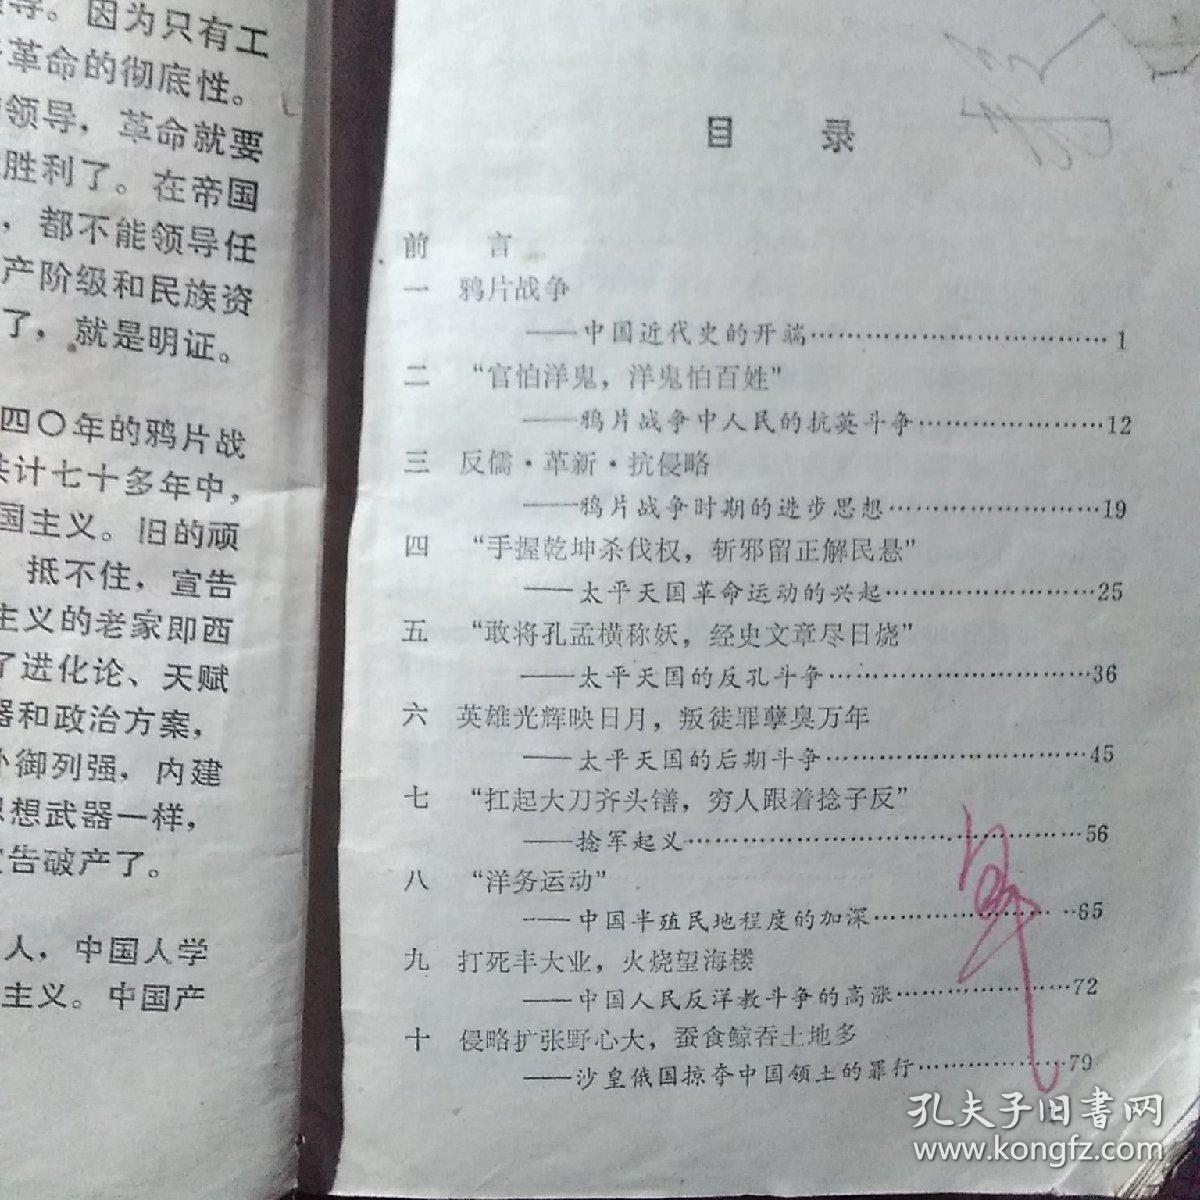 导。因为只有工
革命的彻底性。
领导，革命就要
胜利了。在帝国
，都不能领导任
产阶级和民族资
了，就是明证。
四〇年的鸦片战
共计七十多年中，
国主义。旧的顽
抵不住，宣告
主义的老家即西
了进化论、天赋
器和政治方案，
外御列强，内建
思想武器一样，
宣告破产了。
人，中国人学
主义。中国产
目 录
前 言
一 鸦片战争
——中国近代史的开端………………………………1
二 “官怕洋鬼，洋鬼怕百姓”
——鸦片战争中人民的抗英斗争…………………12
三 反儒·革新·抗侵略
——鸦片战争时期的进步思想……………………19
四 “手握乾坤杀伐权，斩邪留正解民悬”
——太平天国革命运动的兴起……………………25
五 “敢将孔孟横称妖，经史文章尽日烧”
——太平天国的反孔斗争…………………………36
六 英雄光辉映日月，叛徒罪孽臭万年
——太平天国的后期斗争…………………………45
七 “扛起大刀齐头镨，穷人跟着捻子反”
——捻军起义………………………………………56
八 “洋务运动”
——中国半殖民地程度的加深…………………65
九 打死丰大业，火烧望海楼
——中国人民反洋教斗争的高涨…………………72
十 侵略扩张野心大，蚕食鲸吞土地多
——沙皇俄国掠夺中国领土的罪行………………79
孔夫子旧书网
www.kongfz.com